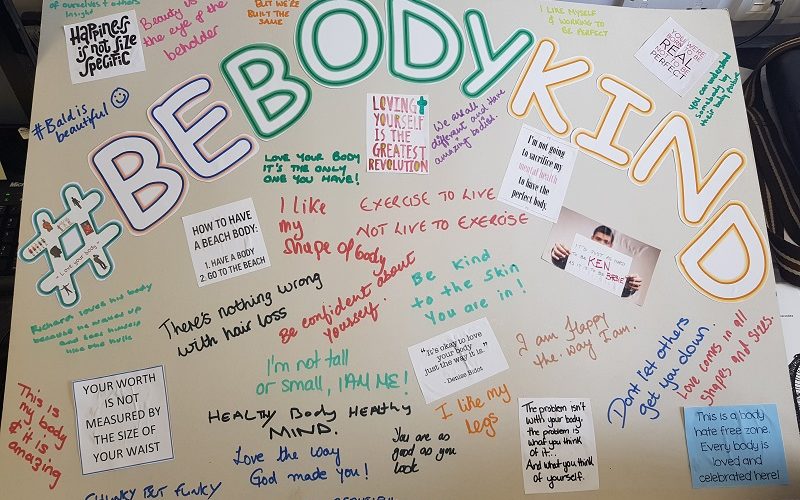 of ourselves + others
Insight
Happiness
is not size
specific
Beauty is in
the eye of the
beholder
BUT WE'RE
BUILT THE
SAME
I LIKE MYSELF
& WORKING TO
BE PERFECT
YOU WERE
BORN TO BE
REAL
NOT TO BE
PERFECT
You can understand
somebody by
their body
#Bald is
beautiful
#BEBODYKIND
Love your body
LOVING
YOURSELF
IS THE
GREATEST
REVOLUTION
We are all
different and have
amazing bodies.
I'm not going
to sacrifice my
mental health
to have the
perfect body.
LOVE YOUR BODY
IT'S THE ONLY
ONE YOU HAVE!
HOW TO HAVE
A BEACH BODY:
1. HAVE A BODY
2. GO TO THE BEACH
I like
my
Shape of body
EXERCISE TO LIVE
NOT LIVE TO EXERCISE
KEN
BARBIE
Richard loves his body
because he waxed up
and sees himself
like the hulk
There's nothing wrong
with hair loss
Be confident about
yourself.
Be kind
to the skin
You are in!
I'm not tall
or small, I AM ME!
"It's okay to love
your body
just the way it is."
- Denise Bidot
I am Happy
the way I am.
Dont let others
get you down.
Love comes in all
shapes and sizes.
This is
my body
& it is
amazing
YOUR WORTH
IS NOT
MEASURED BY
THE SIZE OF
YOUR WAIST
HEALTHY Body HEALTHY
MIND.
Love the way
God made you!
You are as
good as you
look
I like my
legs
The problem isn't
with your body.
the problem is
what you think
of it...
And what you think
of yourself.
This is a body
hate free zone.
Every body is
loved and
celebrated here!
CHUNKY BUT FUNKY
BEAUTIFUL